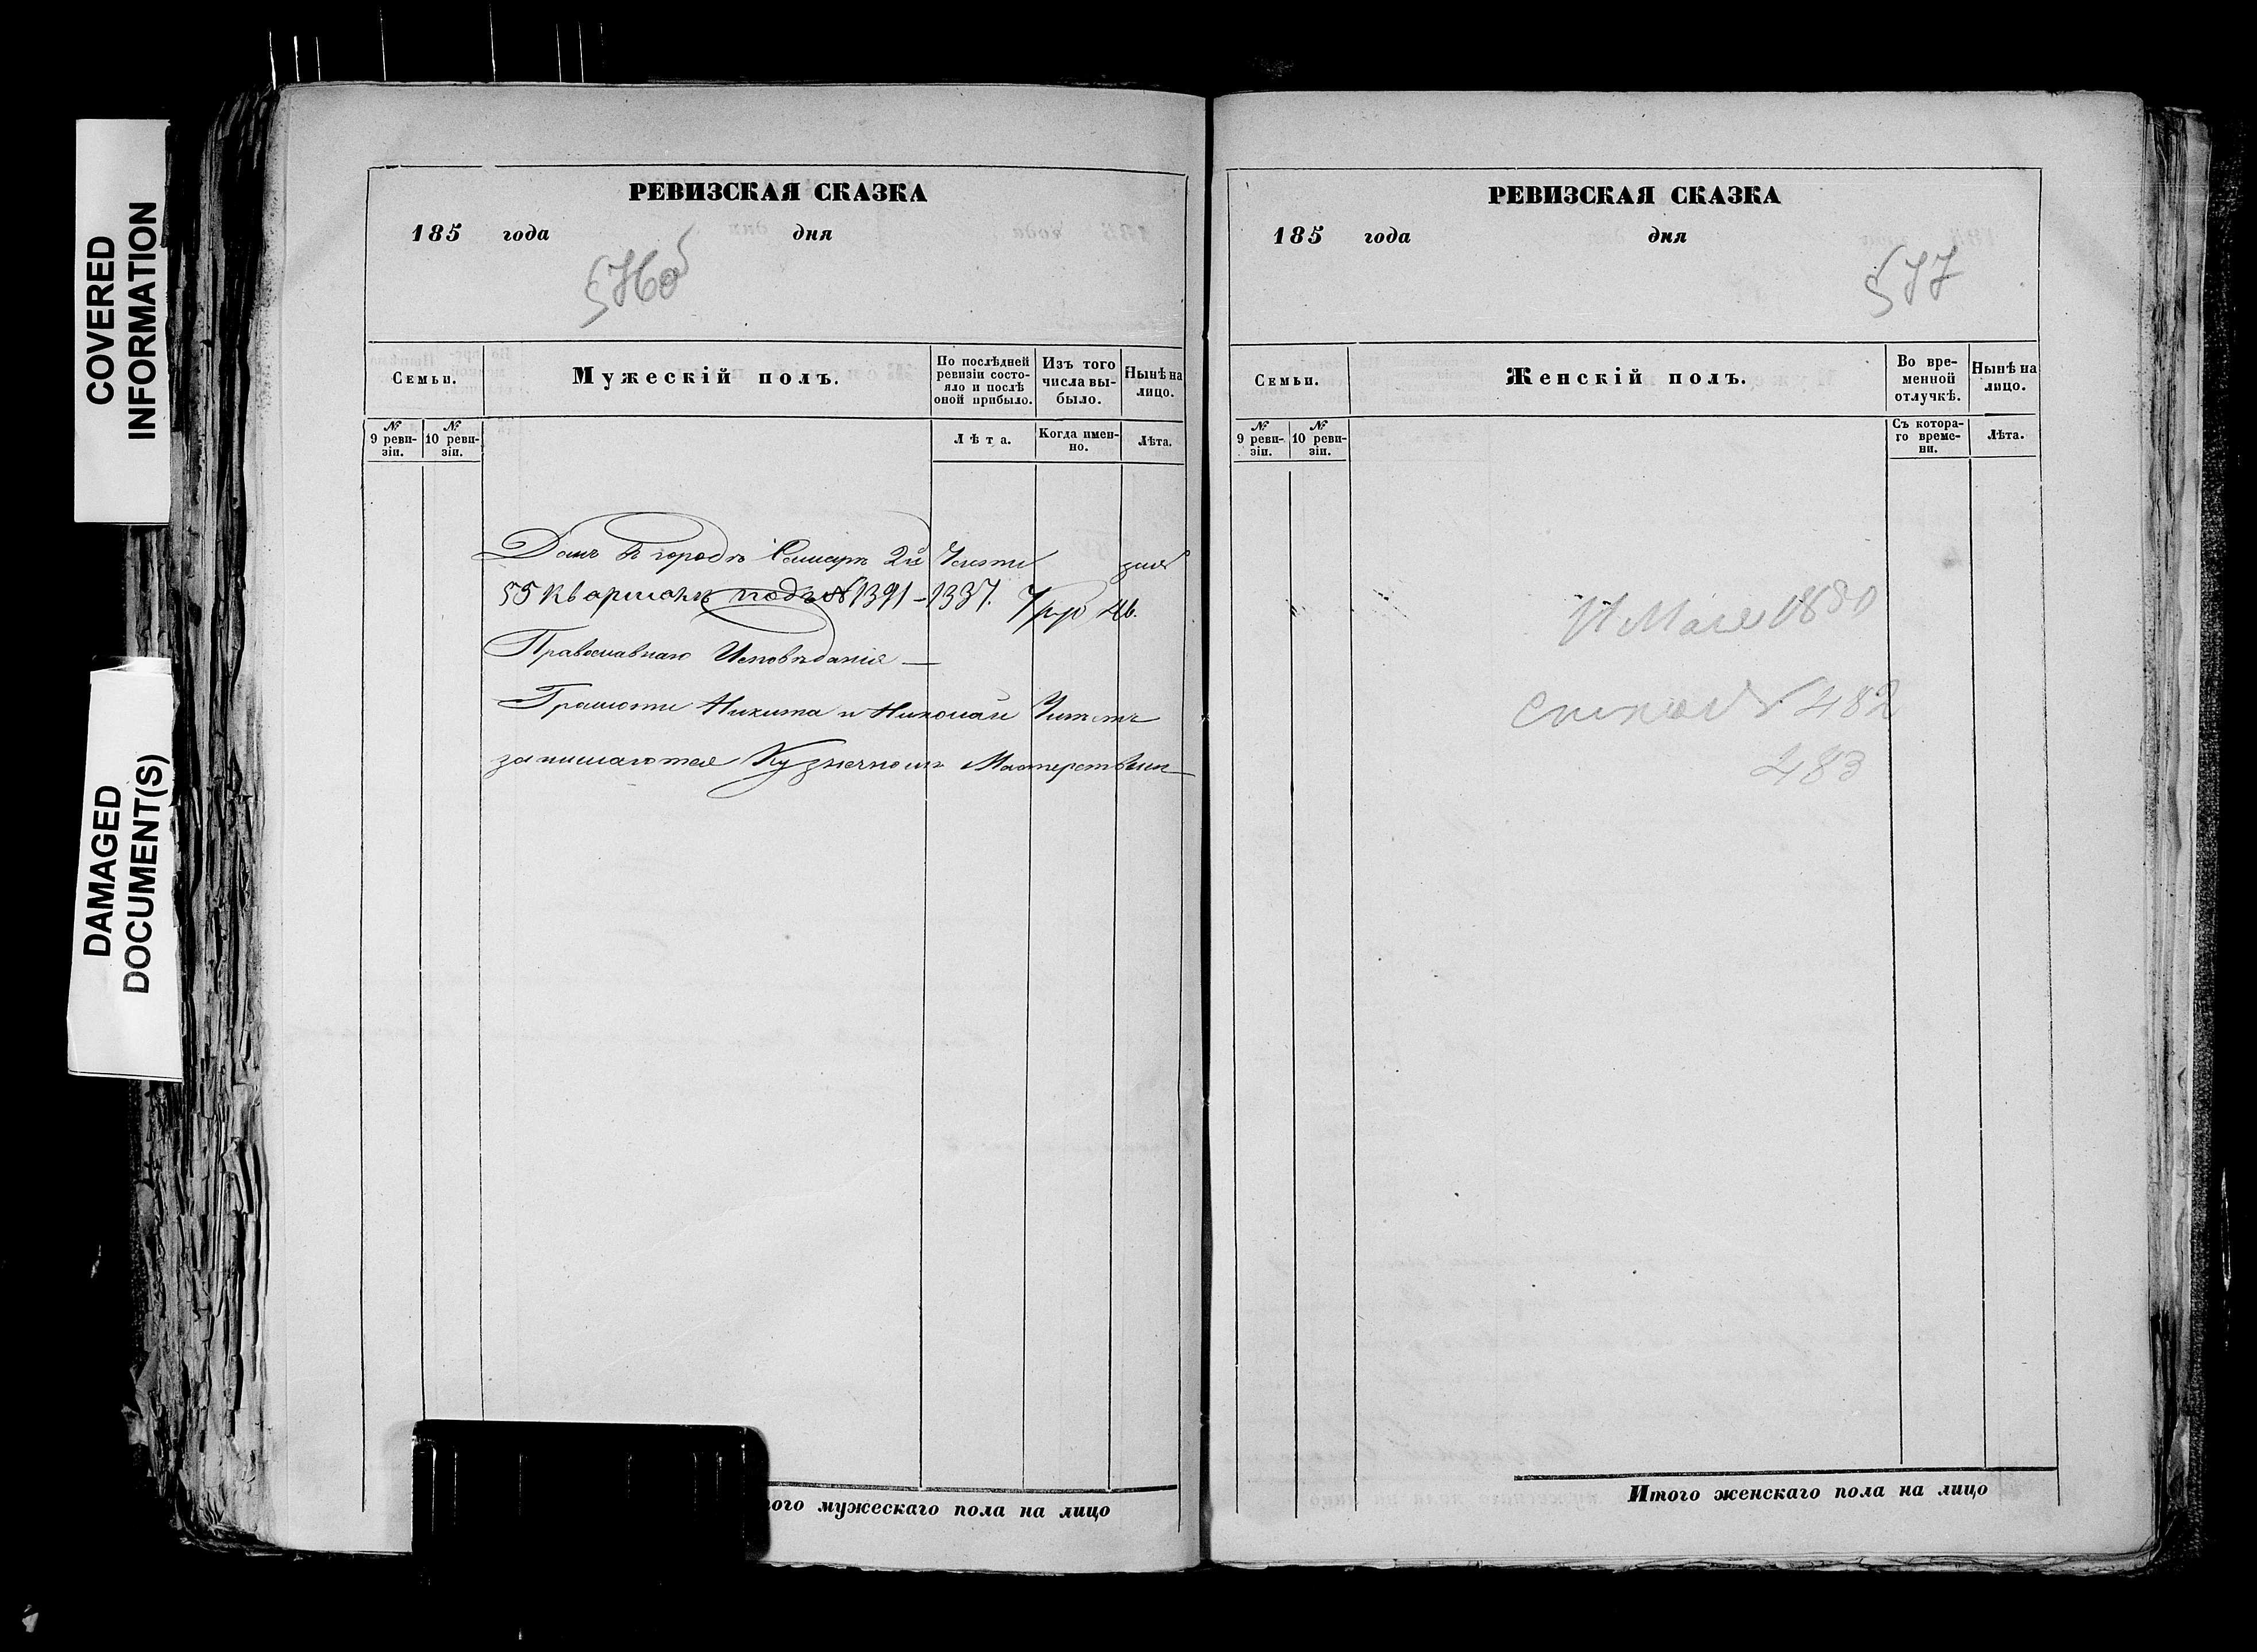 COVERED
INFORMATION
DAMAGED
DOCUMENT(S)
РЕВИЗСКАЯ СКАЗКА
185 года дня
576об
Семьи.
Мужескій полъ.
По послѣдней
ревизіи состо-
яло и послѣ
оной прибыло.
Изъ того
числа вы-
было.
Нынѣ на
лицо.
№
9 реви-
зіи.
№
10 реви-
зіи.
Лѣта.
Когда имен-
но.
Лѣта.
Домъ въ городѣ Самарѣ 2й Части
55 Кварталѣ подъ № 1391 - 1337.
Православнаго Исповѣданія —
Грамоти Никита и Николай
занимаются Кузнечномъ Мастерствомъ
ого мужескаго пола на лицо
РЕВИЗСКАЯ СКАЗКА
185 года дня
577
Семьи.
Женскій полъ.
Во вре-
менной
отлучкѣ.
Нынѣ на
лицо.
№
9 реви-
зіи.
№
10 реви-
зіи.
Съ котора-
го време-
ни.
Лѣта.
Мая 1880
482
483
Итого женскаго пола на лицо